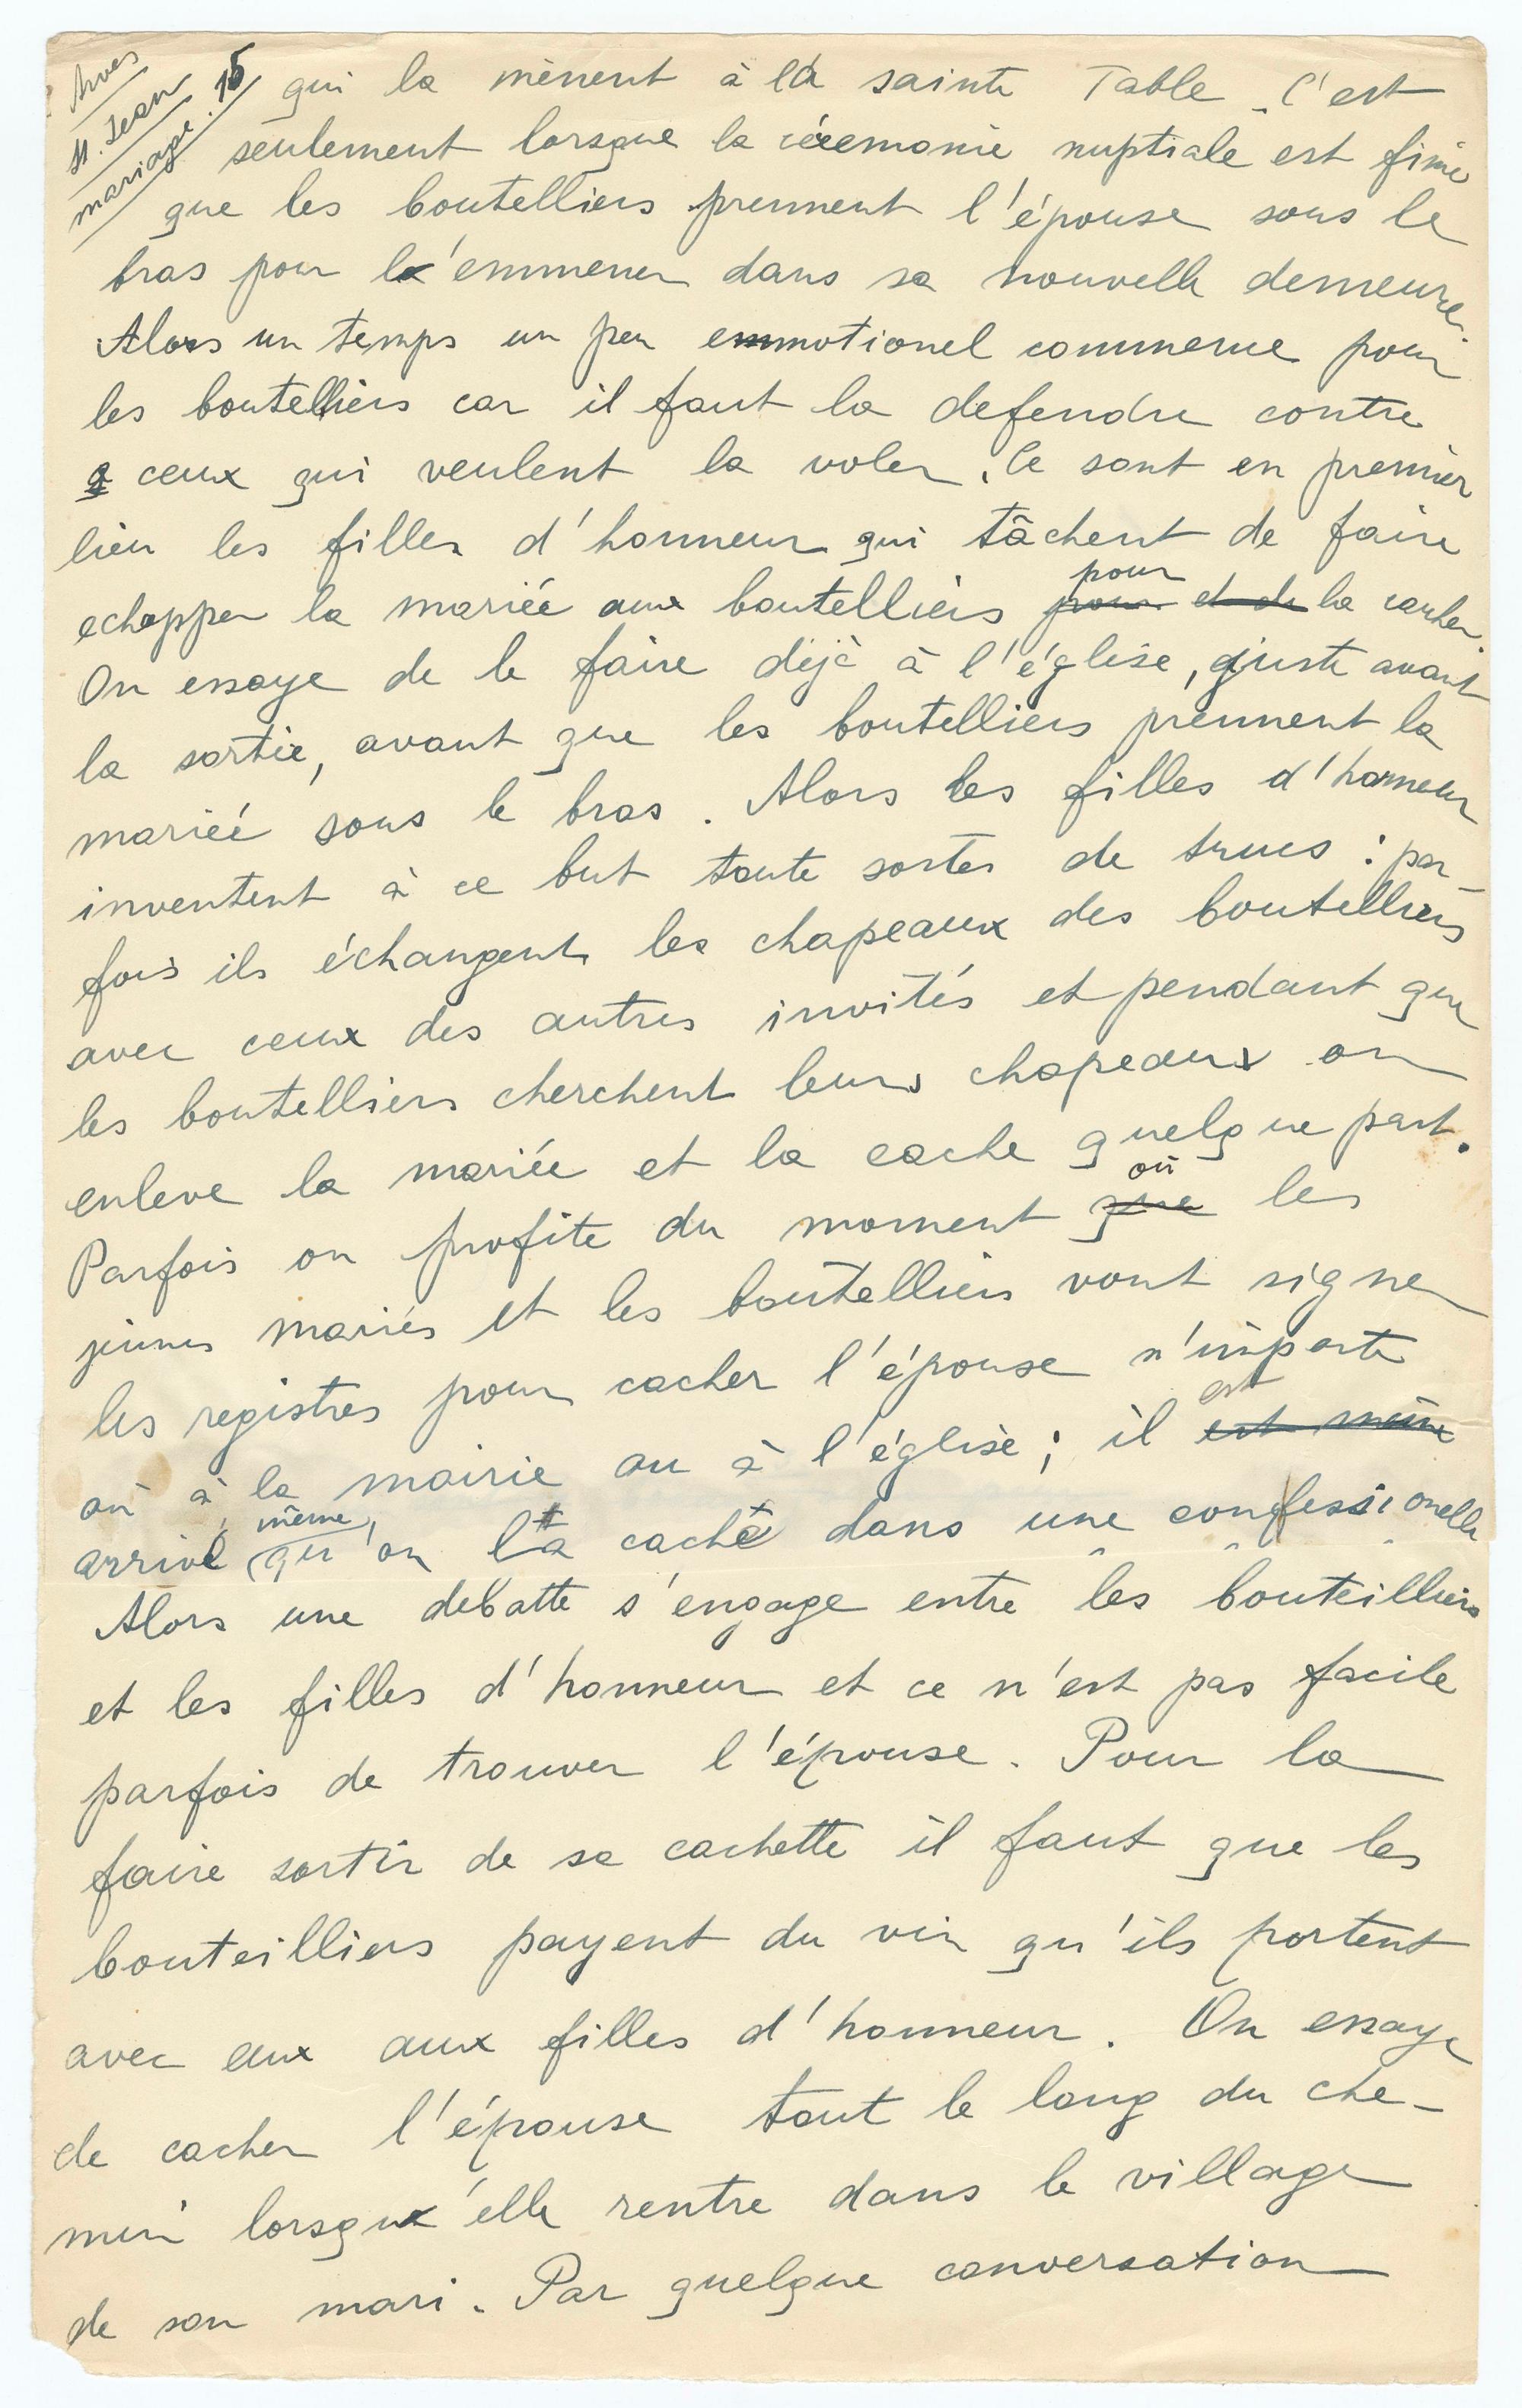 Arves
St. Jean
mariage. 15
qui la mènent à la sainte Table. C'est
seulement lorsque la céremonie nuptiale est finie
que les boutelliers prennent l'épouse sous le
bras pour l'emmener dans sa nouvelle demeure.
Alors un temps un peu emmotionel commence pour
les boutelliers car il faut la defendre contre
ceux qui veulent la voler. Ce sont en premier
lieu les filles d'honneur qui tâchent de faire
echapper la mariée aux boutelliers pour et de la cacher.
pour
On essaye de le faire déjà à l'église, juste avant
la sortie, avant que les boutelliers prennent la
mariée sous le bras. Alors les filles d'honneur
inventent à ce but toute sortes de trucs : par-
fois ils échangent les chapeaux des boutelliers
avec ceux des autres invités et pendant que
les boutelliers cherchent leurs chapeaux on
enleve la mariée et la cache quelque part.
Parfois on profite du moment que les
où
jeunes mariés et les boutelliers vont signer
les registres pour cacher l'épouse n'importe
où à la mairie ou à l'église ; il est même
est
arrivé qu'on l'a caché dans une confessionelle
même
Alors une debatte s'engage entre les bouteilliers
et les filles d'honneur et ce n'est pas facile
parfois de trouver l'épouse. Pour la
faire sortir de sa cachette il faut que les
bouteilliers payent du vin qu'ils portent
avec eux aux filles d'honneur. On essaye
de cacher l'épouse tout le long du che-
min lorsqu'elle rentre dans le village
de son mari. Par quelque conversation